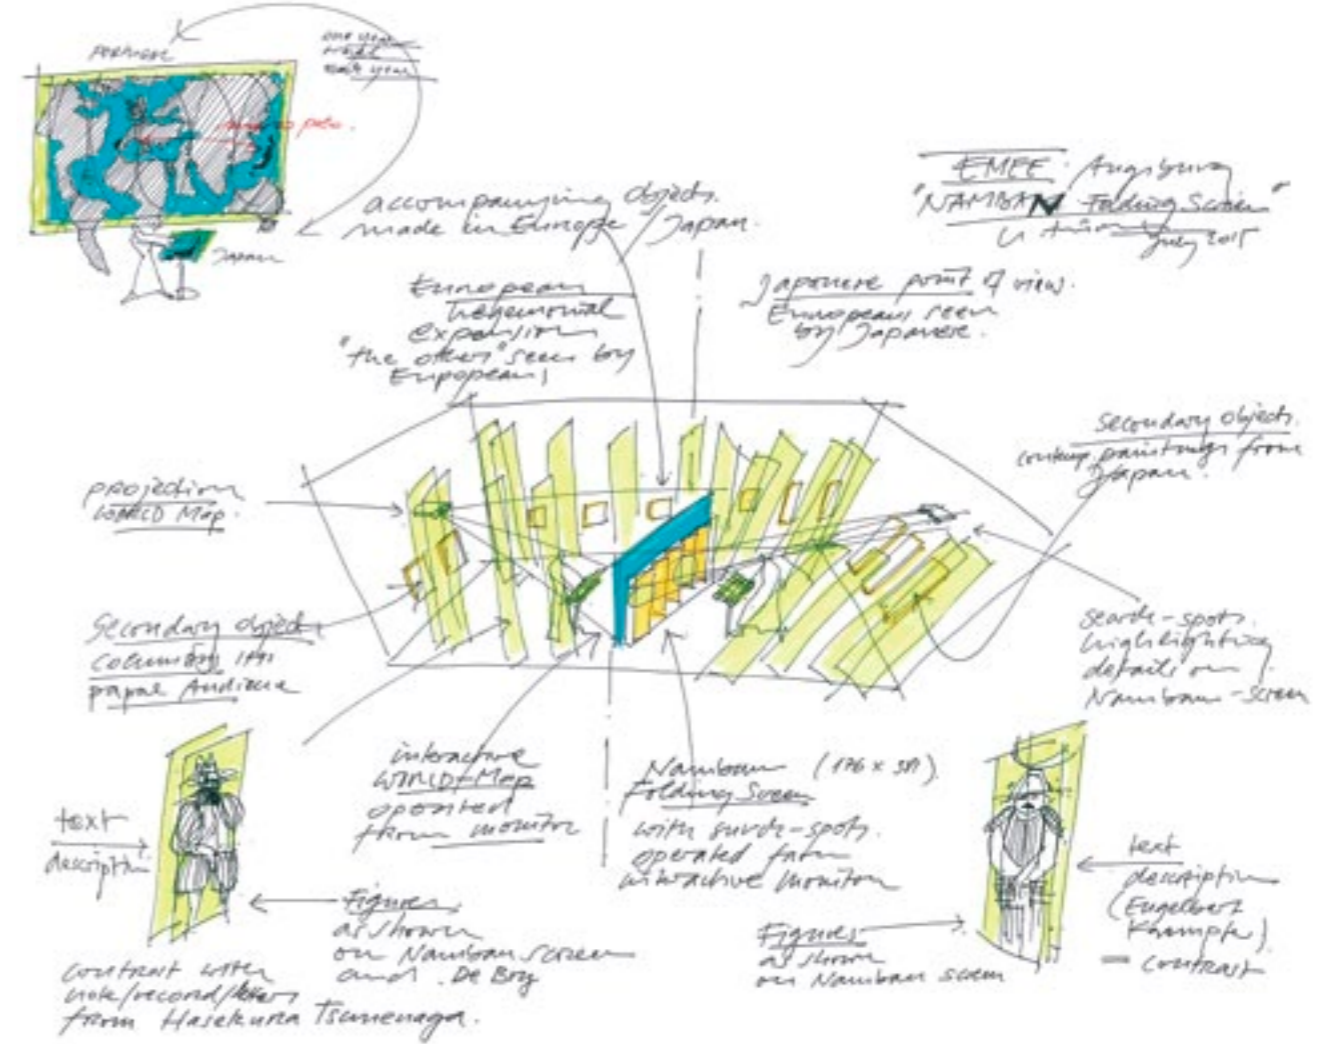 PORTUGAL
one year
EMEE. Augsburg
"NAMBAN Folding Screen"
July 2015
accompanying objects.
made in Europe / Japan.
Japan
European
hegemonial
expansion
"the other" seen by
Europeans
Japanese point of view.
Europeans seen
by Japanese.
Secondary objects.
contemp. paintings from
Japan.
projection
WORLD Map.
Secondary objects
papal Audience
search-spots.
highlighting
details on
Namban-screen
interactive
WORLD-Map
operated
from monitor
Namban
Folding Screen
with search-spots.
operated from
interactive monitor
text
description.
Figures
as shown
on Namban screen
and . De Bry
contrast with
note/record/letters
from Hasekura Tsunenaga.
Figures
as shown
on Namban screen
text
description
(Engelbert
Kaempfer)
= contrast